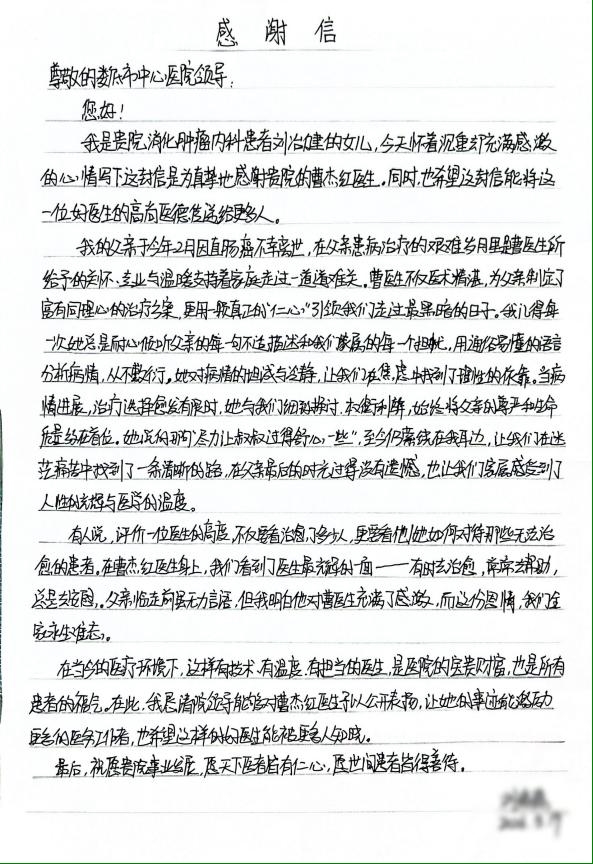 感谢信
尊敬的娄底市中心医院领导：
您好！
我是贵院消化肿瘤内科患者刘治健的女儿，今天怀着沉重却充满感激
的心情写下这封信是为真挚地感谢贵院的曹杰红医生。同时，也希望这封信能将这
一位好医生的高尚医德传递给更多人。
我的父亲于今年2月因直肠癌不幸离世，在父亲患病治疗的艰难岁月里是曹医生所
给予的关怀、专业与温暖支持着家庭走过一道道难关。曹医生不仅医术精湛，为父亲制定了
富有同理心的治疗方案，更用一颗真正的“仁心”引领我们走过最黑暗的日子。我记得每
一次她总是耐心倾听父亲的每一句不适描述和我们家属的每一个担忧，用通俗易懂的语言
分析病情，从不敷衍。她对病情的坦诚与冷静，让我们在焦虑中找到了理性的依靠。当病
情进展，治疗选择愈发有限时，她与我们细致探讨、权衡利弊，始终将父亲的尊严和生命
质量放在首位。她说的那句“尽力让叔叔过得舒心一些”，至今仍萦绕在我耳边，让我们在迷
茫痛苦中找到了一条清晰的路，在父亲最后的时光过得没有遗憾，也让我们家属感受到了
人性的光辉与医学的温度。
有人说，评价一位医生的高度，不仅要看治愈了多少人，更要看他/她如何对待那些无法治
愈的患者。在曹杰红医生身上，我们看到了医生最光辉的一面——有时去治愈，常常去帮助，
总是去安慰。父亲临走前虽无力言语，但我明白他对曹医生充满了感激，而这份恩情，我们全
家永生难忘。
在当今的医疗环境下，这样有技术、有温度、有担当的医生，是医院的宝贵财富，也是所有
患者的福气。在此，我恳请院领导能够对曹杰红医生予以公开表扬，让她的事迹能激励
更多的医务工作者，也希望这样的好医生能被更多人知晓。
最后，祝愿贵院事业发展，愿天下医者皆有仁心，愿世间患者皆得善待。